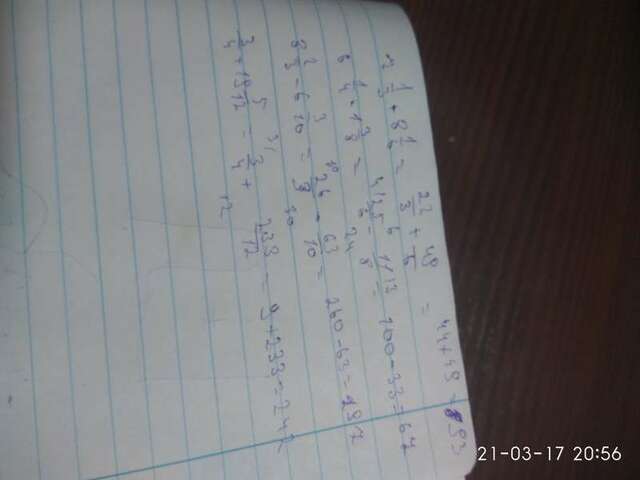 7 1/3 + 8 1/6 = 22/3 + 49/6 = 44+49 = 93
6 1/4 - 1 3/8 = 25/6 - 11/8 = 100-33=67
8 2/3 - 6 3/10 = 26/3 - 63/10 = 260-63=197
3/4 + 19 5/12 = 3/4 + 233/12 = 9+233=242
21-03-17 20:56